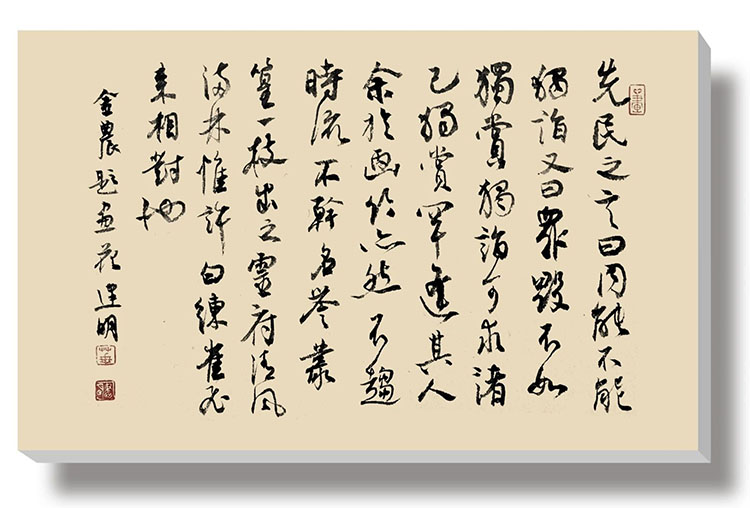 先民之言曰同能不能
獨詣又曰衆毁不如
獨賞獨詣可求諸
己獨賞罕逢其人
余於画竹亦然不趨
時流不幹名誉叢
篁一枝出之靈府清風
滿林惟許白練雀飛
来相對也
金農題画 明